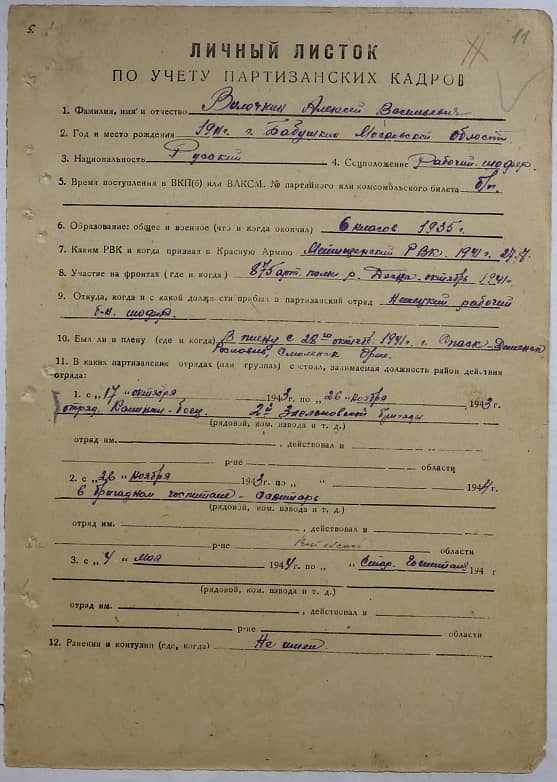 5.
11
ЛИЧНЫЙ ЛИСТОК
ПО УЧЕТУ ПАРТИЗАНСКИХ КАДРОВ
1. Фамилия, имя и отчество Вилочкин Алексей Васильевич
2. Год и место рождения 1911г. г. Бабушкин Московской области
3. Национальность Русский 4. Соцположение Рабочий шофер.
5. Время поступления в ВКП(б) или ВЛКСМ. № партийного или комсомольского билета б/п.
6. Образование: общее и военное (что и когда окончил) 6 класов 1935г.
7. Каким РВК и когда призван в Красную Армию Мытищенский РВК. 1941г.
8. Участие на фронтах (где и когда) 875 арт. полк р. Десна. октябрь 1941г.
9. Откуда, когда и с какой должности прибыл в партизанский отряд Немецкий рабочий
шофер.
10. Был ли в плену (где и когда) В плену с октябр. 1941г. г. Спаск-Деменск
Рославль, Смоленск
11. В каких партизанских отрядах (или группах) состоял, занимаемая должность район действия
отряда:
1. с „17" октября 1943 г. по „26" ноября 1943г.
отряд Калинин - боец. 2й бригады
(рядовой, ком. взвода и т. д.)
отряд им. , действовал в
р-не области
2. с „26" ноября 1943г. по „ " 1944г.
в бригадном госпитале - санитаре
(рядовой, ком. взвода и т. д.)
отряд им. , действовал в
р-не области
3. с „4" мая 1944г. по „ " госпиталя 194 г
(рядовой, ком. взвода и т. д.)
отряд им. , действовал в
р-не области
12. Ранения и контузии (где, когда) Не имел.